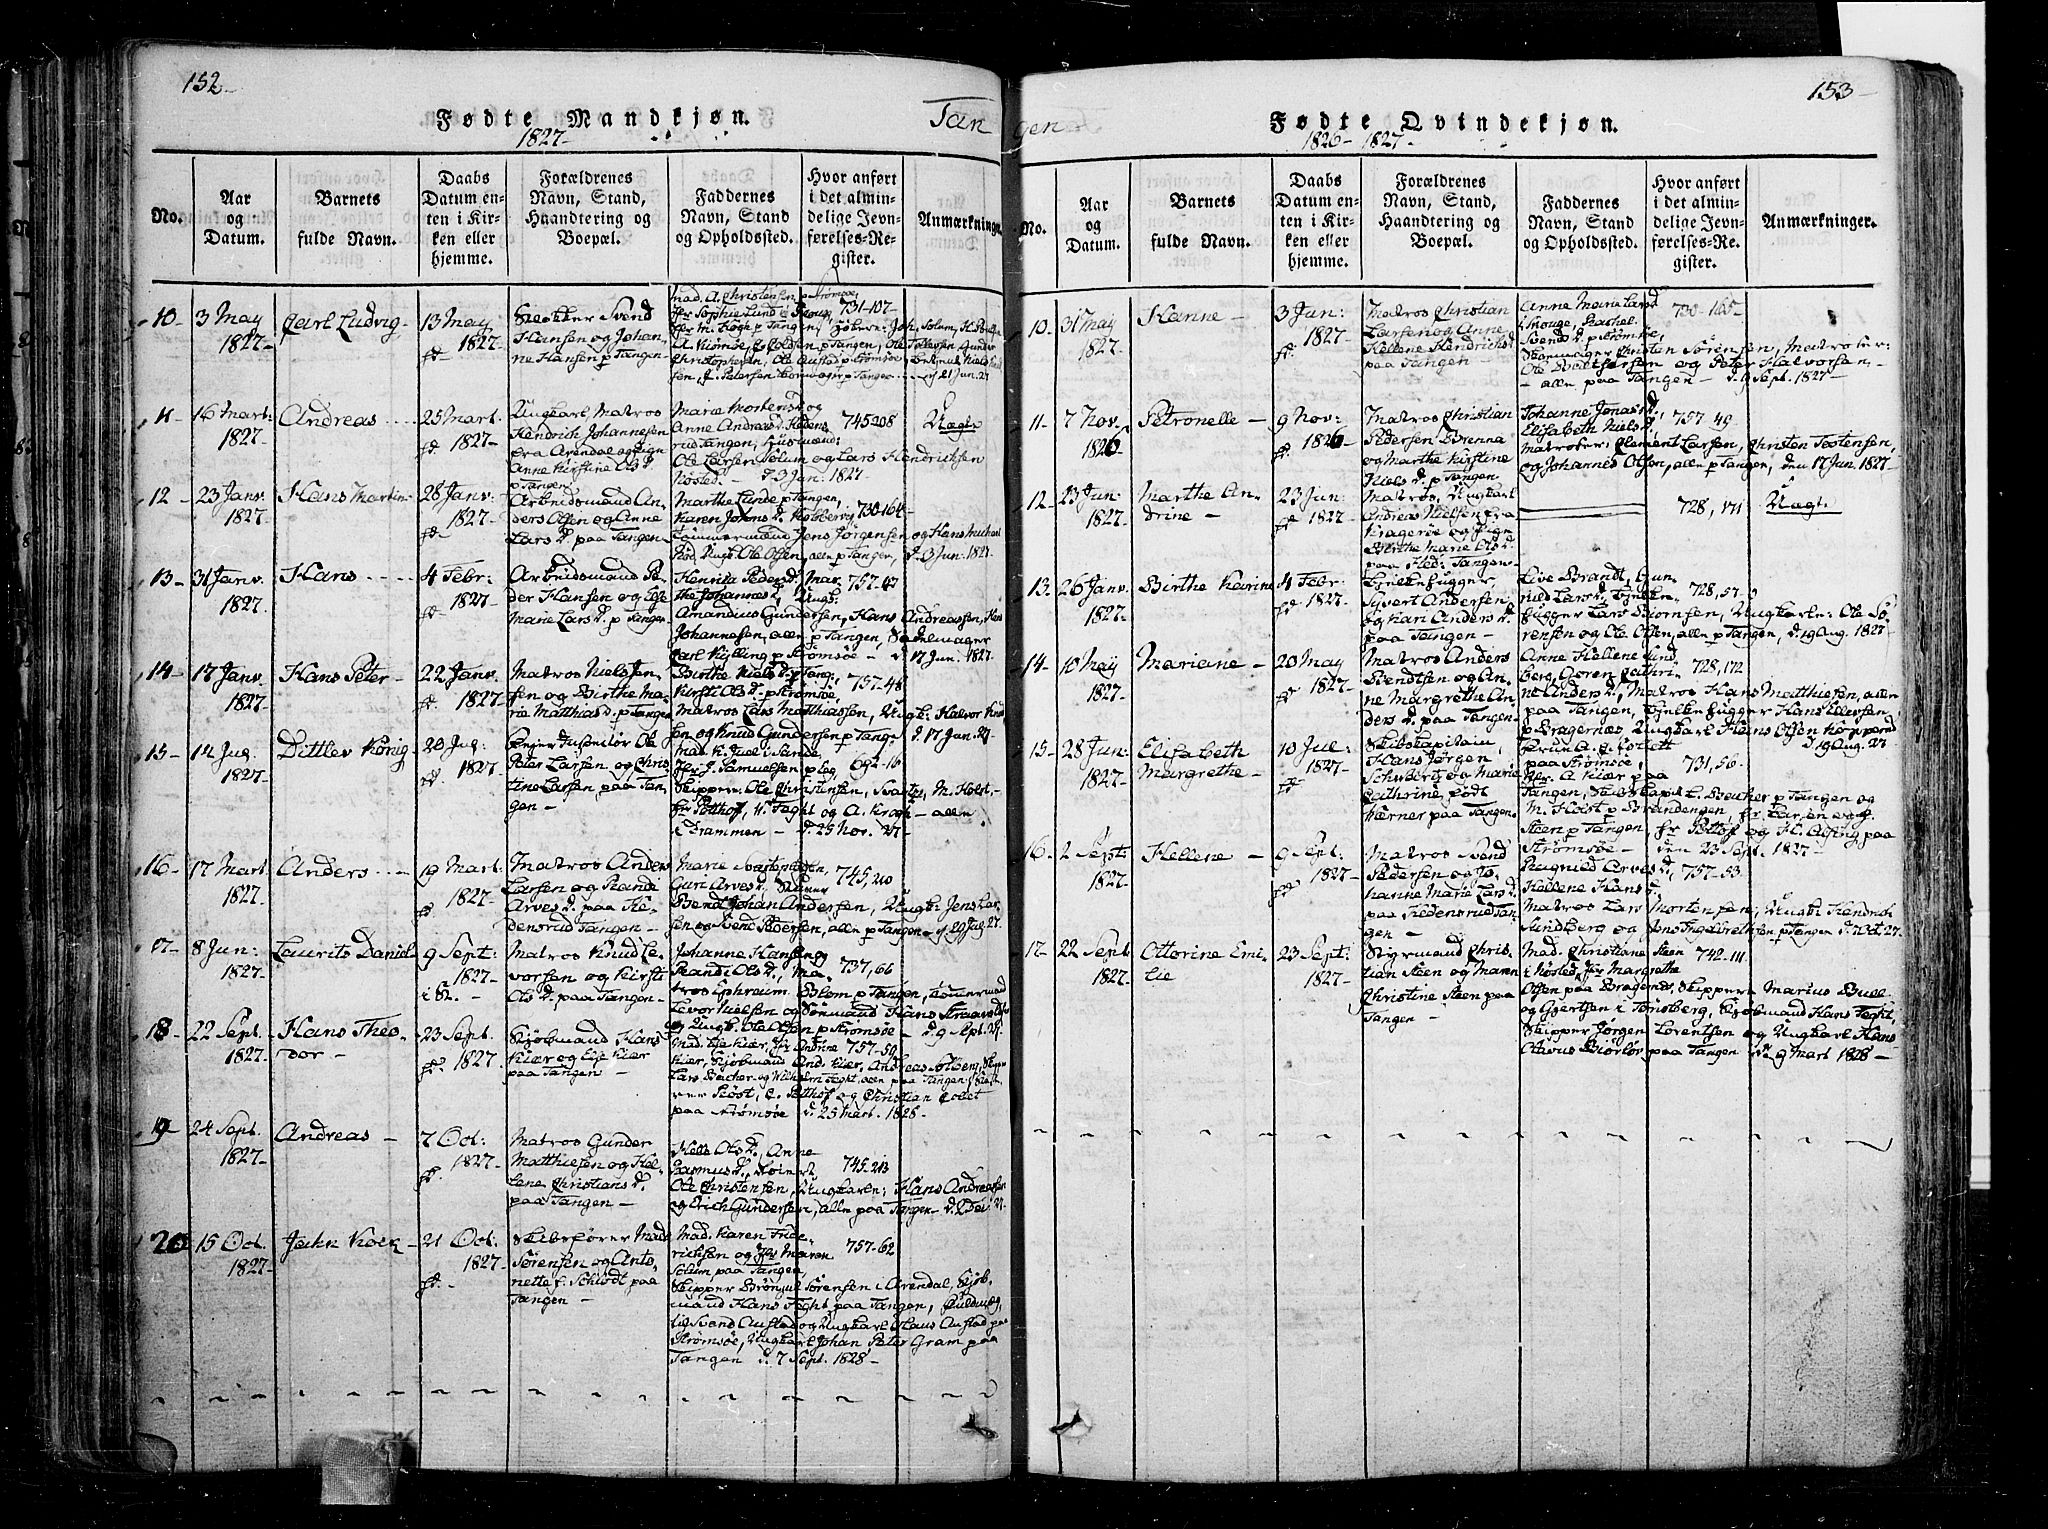 152-
Fødte Mandkjøn.
Tan
1827-
No.
Aar
og
Datum.
Barnets
fulde Navn.
Daabs
Datum en-
ten i Kir-
ken eller
hjemme.
Forældrenes
Navn, Stand,
Haandtering og
Boepæl.
Faddernes
Navn, Stand
og Opholdssted.
Hvor anført
i det almin-
delige Jevn-
førelses-Re-
gister.
Anmærkninger.
10- 3 May
1827-
Carl Ludvig-
13 May
1827-
Svend
Hansen og Johan-
ne Hansen p Tangen-
Mad. A. Christensen p Strømsøe,
731-107-
11- 16 Mart:
1827-
Andreas
25 Mart.
1827-
Ungkarl Matros
Hendrich Johannesen
fra Arendal og Pigen
Anne Kirstine Ols D.
p Tangen-
Marie Mortens D. og
Anne Andreas D. Hedens
rud Tangen, Huusmænd:
Ole Larsen Solum og Lars Hendrichsen
Kosted. - D. 3 Jun: 1827
745-208
Uægte
12- 23 Janv.
1827-
Hans Martin-
28 Janv.
1827-
Arbeidsmand An-
ders Olsen og Anne
Lars D. paa Tangen-
Marthe Lunde p Tangen,
730-164
Tømmermænd Jens Jørgensen og Hans Michael
Ungk. Ole Olsen, alle p Tangen, d. 3 Jun: 1827.
13- 31 Janv.
1827.
Hans
4 Febr:
1827-
Arbeidsmand Pe-
der Hansen og Else
Marie Lars D. p Tangen-
Henrika Peders D. Mar-
the Johannes D. Ungk.
757-47
Amandius Gundersen, Hans Andreassen, Hans
Johannesen, alle p Tangen, Sadelmager
Carl Kylling p Strømsøe - d. 17 Jun. 1827.
14- 17 Janv.
1827-
Hans Peter-
22 Janv.
1827-
Matros Niels Jen-
sen og Birthe Ma-
rie Matthias D. p Tangen
Birthe Niels D. p Tang:
Kirsti Ols D. p Strømsøe
757-48
Matros Lars Matthiassen, Ungk: Halvor Knud
sen og Knud Gundersen p Tang- d. 17 Jun. 27
15- 14 Jul.
1827-
Dittlev König-
20 Jul:
1827
Ole
Peter Larsen og Chris
tine Larsen, paa Tan-
gen-
Mad. K. Juel i Sande
Jfr. J. Samuelsen p
692-16
Skipper: Ole Christensen, M. Holst,-
hr Potthof, W. Faght og A. Krogh - alle
i Drammen - d. 25 Nov. 27-
16- 17 Mart.
1827.
Anders
19 Mart.
1827-
Matros Anders
Larsen og Rande
Arves D. paa He-
densrud Tangen-
Guri Arves D.
745,210
Johan Andersen, Ungk: Jens Lar-
sen og Svend Pedersen, alle p Tangen- d. 29 July 27.
17- 8 Jun:
1827.
Laurits Daniel-
9 Sept.
1827-
i K. -
Matros Knud Le-
vorsen og Kirsti
Ols D. paa Tangen-
Johanne Hansen og
Rande Ols D., Ma-
737,66
tros Ephreum Blom p Tangen, Tømermand
Levor Nielsen og Sømand Hans
og Ungk. Ole Olsen p Strømsøe - d. 9 Sept. 27.
18- 22 Sept.
1827.
Hans Theo-
dor-
23 Sept.
1827.
Kjøbmand Hans
Kiær og Else Kiær
paa Tangen-
Mad. Else Kiær, Jfr Andrine
757-50
Kiær, Kjøbmænd And. Kiær, Andreas Solberg,
Lars Beicher og Wilhelm Faght, alle paa Tangen,
Røst, C. Potthof og Christian
paa Strømsøe d. 25 Mart. 1828-
19- 24 Sept.
1827-
Andreas-
7 Oct:
1827-
Matros Gunder
Matthiesen og Hel-
lene Christians D.
paa Tangen-
Helle Ols D. Anne
Rasmus D.
745-213
Ole Christensen, Ungkarle: Hans Andreassen
og Erich Gundersen, alle paa Tangen- d. 2 Dec. 27.
20 15 Oct.
1827-
Jahn Koch-
21 Oct:
1827-
Skibsfører Mads
Sørensen og Anto-
nette f. Schiødt paa
Tangen-
Mad. Karen Frede-
richsen og Jfr Maren
757-62
Solum paa Tangen,
Skipper Sørensen i Arendal, Kjøb-
mand Hans Faght paa Tangen,
Svend Austad og Ungkarl Claus Austad paa
Strømsøe, Ungkarl Johan Peter Gram paa
Tangen d. 7 Sept. 1828-
153-
gen
Fødte Qvindekjøn.
1826- 1827-
No.
Aar
og
Datum.
Barnets
fulde Navn.
Daabs
Datum en-
ten i Kir-
ken eller
hjemme.
Forældrenes
Navn, Stand,
Haandtering og
Boepæl.
Faddernes
Navn, Stand
og Opholdssted.
Hvor anført
i det almin-
delige Jevn-
førelses-Re-
gister.
Anmærkninger.
10. 31 May
1827-
Hanne-
3 Jun:
1827-
Matros Christian
Larsen og Anne
Hellene Hendrichs D.
paa Tangen
Anne Marie Lars D.
730-165-
Svends D. p Strømsøe,
Skomager Christen Sørensen, Matroser:
Ole Baltsersen og Peter Halvorsen,-
- alle paa Tangen - d. 9 Sept. 1827-
11- 7 Nov.
1826
Petronelle-
9 Nov:
1826
Matros Christian
Pedersen Brenna
og Marthe Kirstine
Niels D. p Tangen-
Johanne Jonas D.,
Elisabeth Niels D.,
757-49
Matroser: Clement Larsen, Christen Tostensen,
og Johannes Olsen, alle p Tangen, den 17 Jun. 1827-
12. 23 Jun:
1827-
Marthe An-
drine-
23 Jun:
1827-
Matros, Ungkarl
Andreas Nielsen fra
Kragerøe og Pigen
Birthe Marie Ols D.
paa Hed: Tangen-
728, 171
Uægte
13. 26 Janv.
1827-
Birthe Karine
4 Febr:
1827-
Bjelkehugger,
Sivert Andersen
og Kari Anders D.
paa Tangen-
Live Brandt, Gun-
nild Lars D., Bjelke-
728, 57
hugger Lars Biørnsen, Ungkarle: Ole Sø-
rensen og Ole Olsen, alle p Tangen, d. 19 Aug. 1827-
14- 10 May
1827-
Mariane-
20 May
1827-
Matros Anders
Svendsen og An-
ne Margrethe An-
ders D. paa Tangen-
Anne Hellene Lund
berg, Maren Cathri-
728, 172
ne Anders D., Matros Hans Matthiesen, alle
paa Tangen, Bjelkehugger Hans Ellersen,
p Bragernæs Ungkarl Hans Olsen
d. 19 Aug. 27-
15- 28 Jun:
1827-
Elisabeth
Margrethe-
10 Jul:
1827-
Skibskapitain,
Hans Jørgen
Schwartz og Marie
Cathrine, født
Werner paa Tangen.
Fru A. C. Collett
paa Strømsøe,
731, 56-
Jfr. A. Kiær paa
Tangen, Skibskapit. L. Beicher p Tangen og
M. Holst p Brandengen, hr Larsen og
Steen p Tangen, hr Pothof og H. Alfing paa
Strømsøe- den 23 Sept. 1827-
16- 2 Sept:
1827-
Hellene-
9 Sept:
1827-
Matros Svend
Pedersen og Jo-
hanne Marie Lars D.
paa Hedensrud Tan-
gen-
Ragnild Arves D.,
Hellene Hans D.
757-53
Matros Lars Mortensen, Ungk. Hendrich
Lundberg og Jens Ingebrethsen p Tangen d. 7 Oct. 27.
17- 22 Sept.
1827-
Ottorine Emi-
lie
23 Sept.
1827-
Styrmand Chris-
tian Steen og Maren
Christine Steen paa
Tangen-
Mad. Christiane Steen
742-111
i Kosled, Jfr Margrethe
Olsen paa Bragernes, Skipper: Marius Bull
og Gjertsen i Tønsberg, Kjøbmand Hans Faght,
Skipper Jørgen Lorentsen og Ungkarl Hans
Olavus Biørløv paa Tangen den 9 Mart 1828-